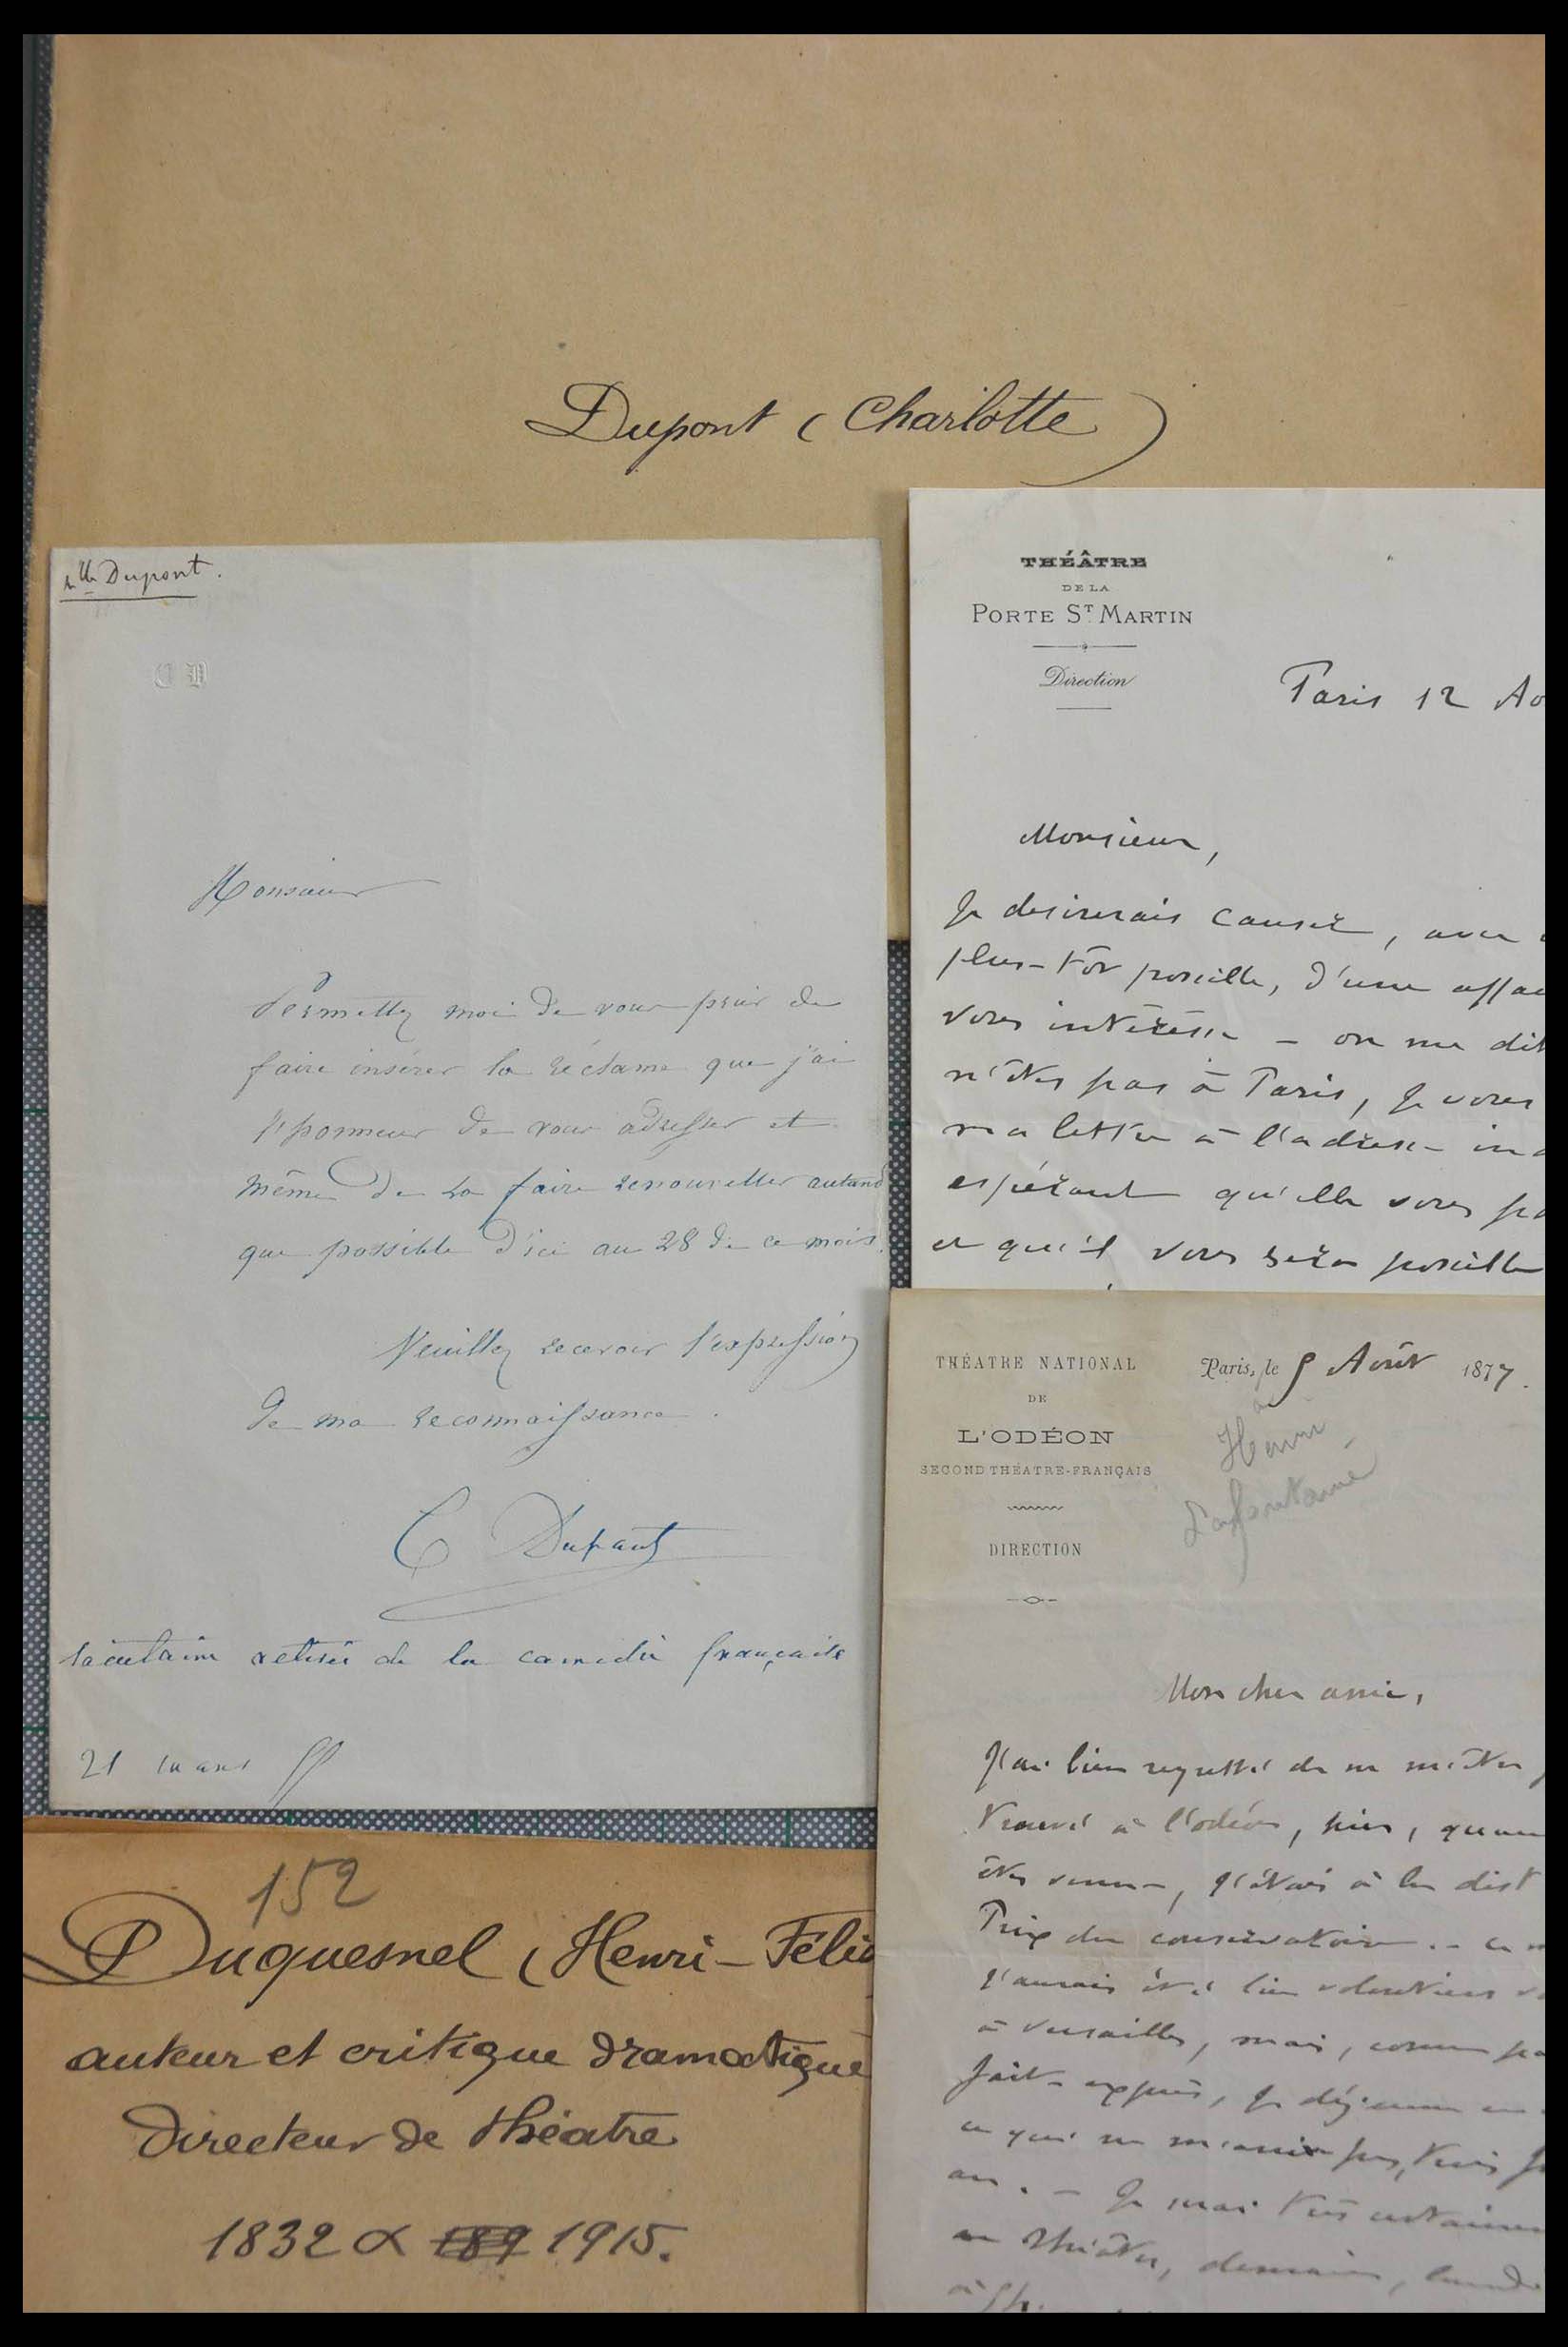 Dupont (Charlotte)
Mlle Dupont.
C D
Monsieur
Permettez moi de vous prier de
faire insérer la réclame que j'ai
l'honneur de vous adresser et
même de la faire renouveller autand
que possible d'ici au 28 de ce mois.
Veuillez recevoir l'expression
de ma reconnaissance.
C Dupont
sociétaire retirée de la comédie française
21 mars
THÉÂTRE
DE LA
PORTE ST MARTIN
Direction
Paris 12 Ao
Monsieur,
Je desirerais causer, avec
plus-tôt possible, d'une affai
vous intéresse - on me dit
n'êtes pas à Paris, je vous
ma lettre à l'adresse in
espérant qu'elle vous pa
et qu'il vous sera possible
THÉATRE NATIONAL
DE
L'ODÉON
SECOND THÉATRE-FRANÇAIS
DIRECTION
Paris, le 5 Août 1877.
à
Henri
Lafontaine
Mon cher ami,
J'ai bien regretté de ne m'être
trouvé à l'odéon, hier, quan
êtes venu, j'étais à la dist
Prix du conservatoire. - ce
j'aurais été bien volontiers
à Versailles, mais, comme pa
fait exprès, je déjeune en
ce qui ne m'arrive pas, trois f
an. - Je serai très certainem
au théâtre, demain, lundi
à
152
Duquesnel (Henri-Félix
auteur et critique dramatique
directeur de théatre
1832 à 189 1915.